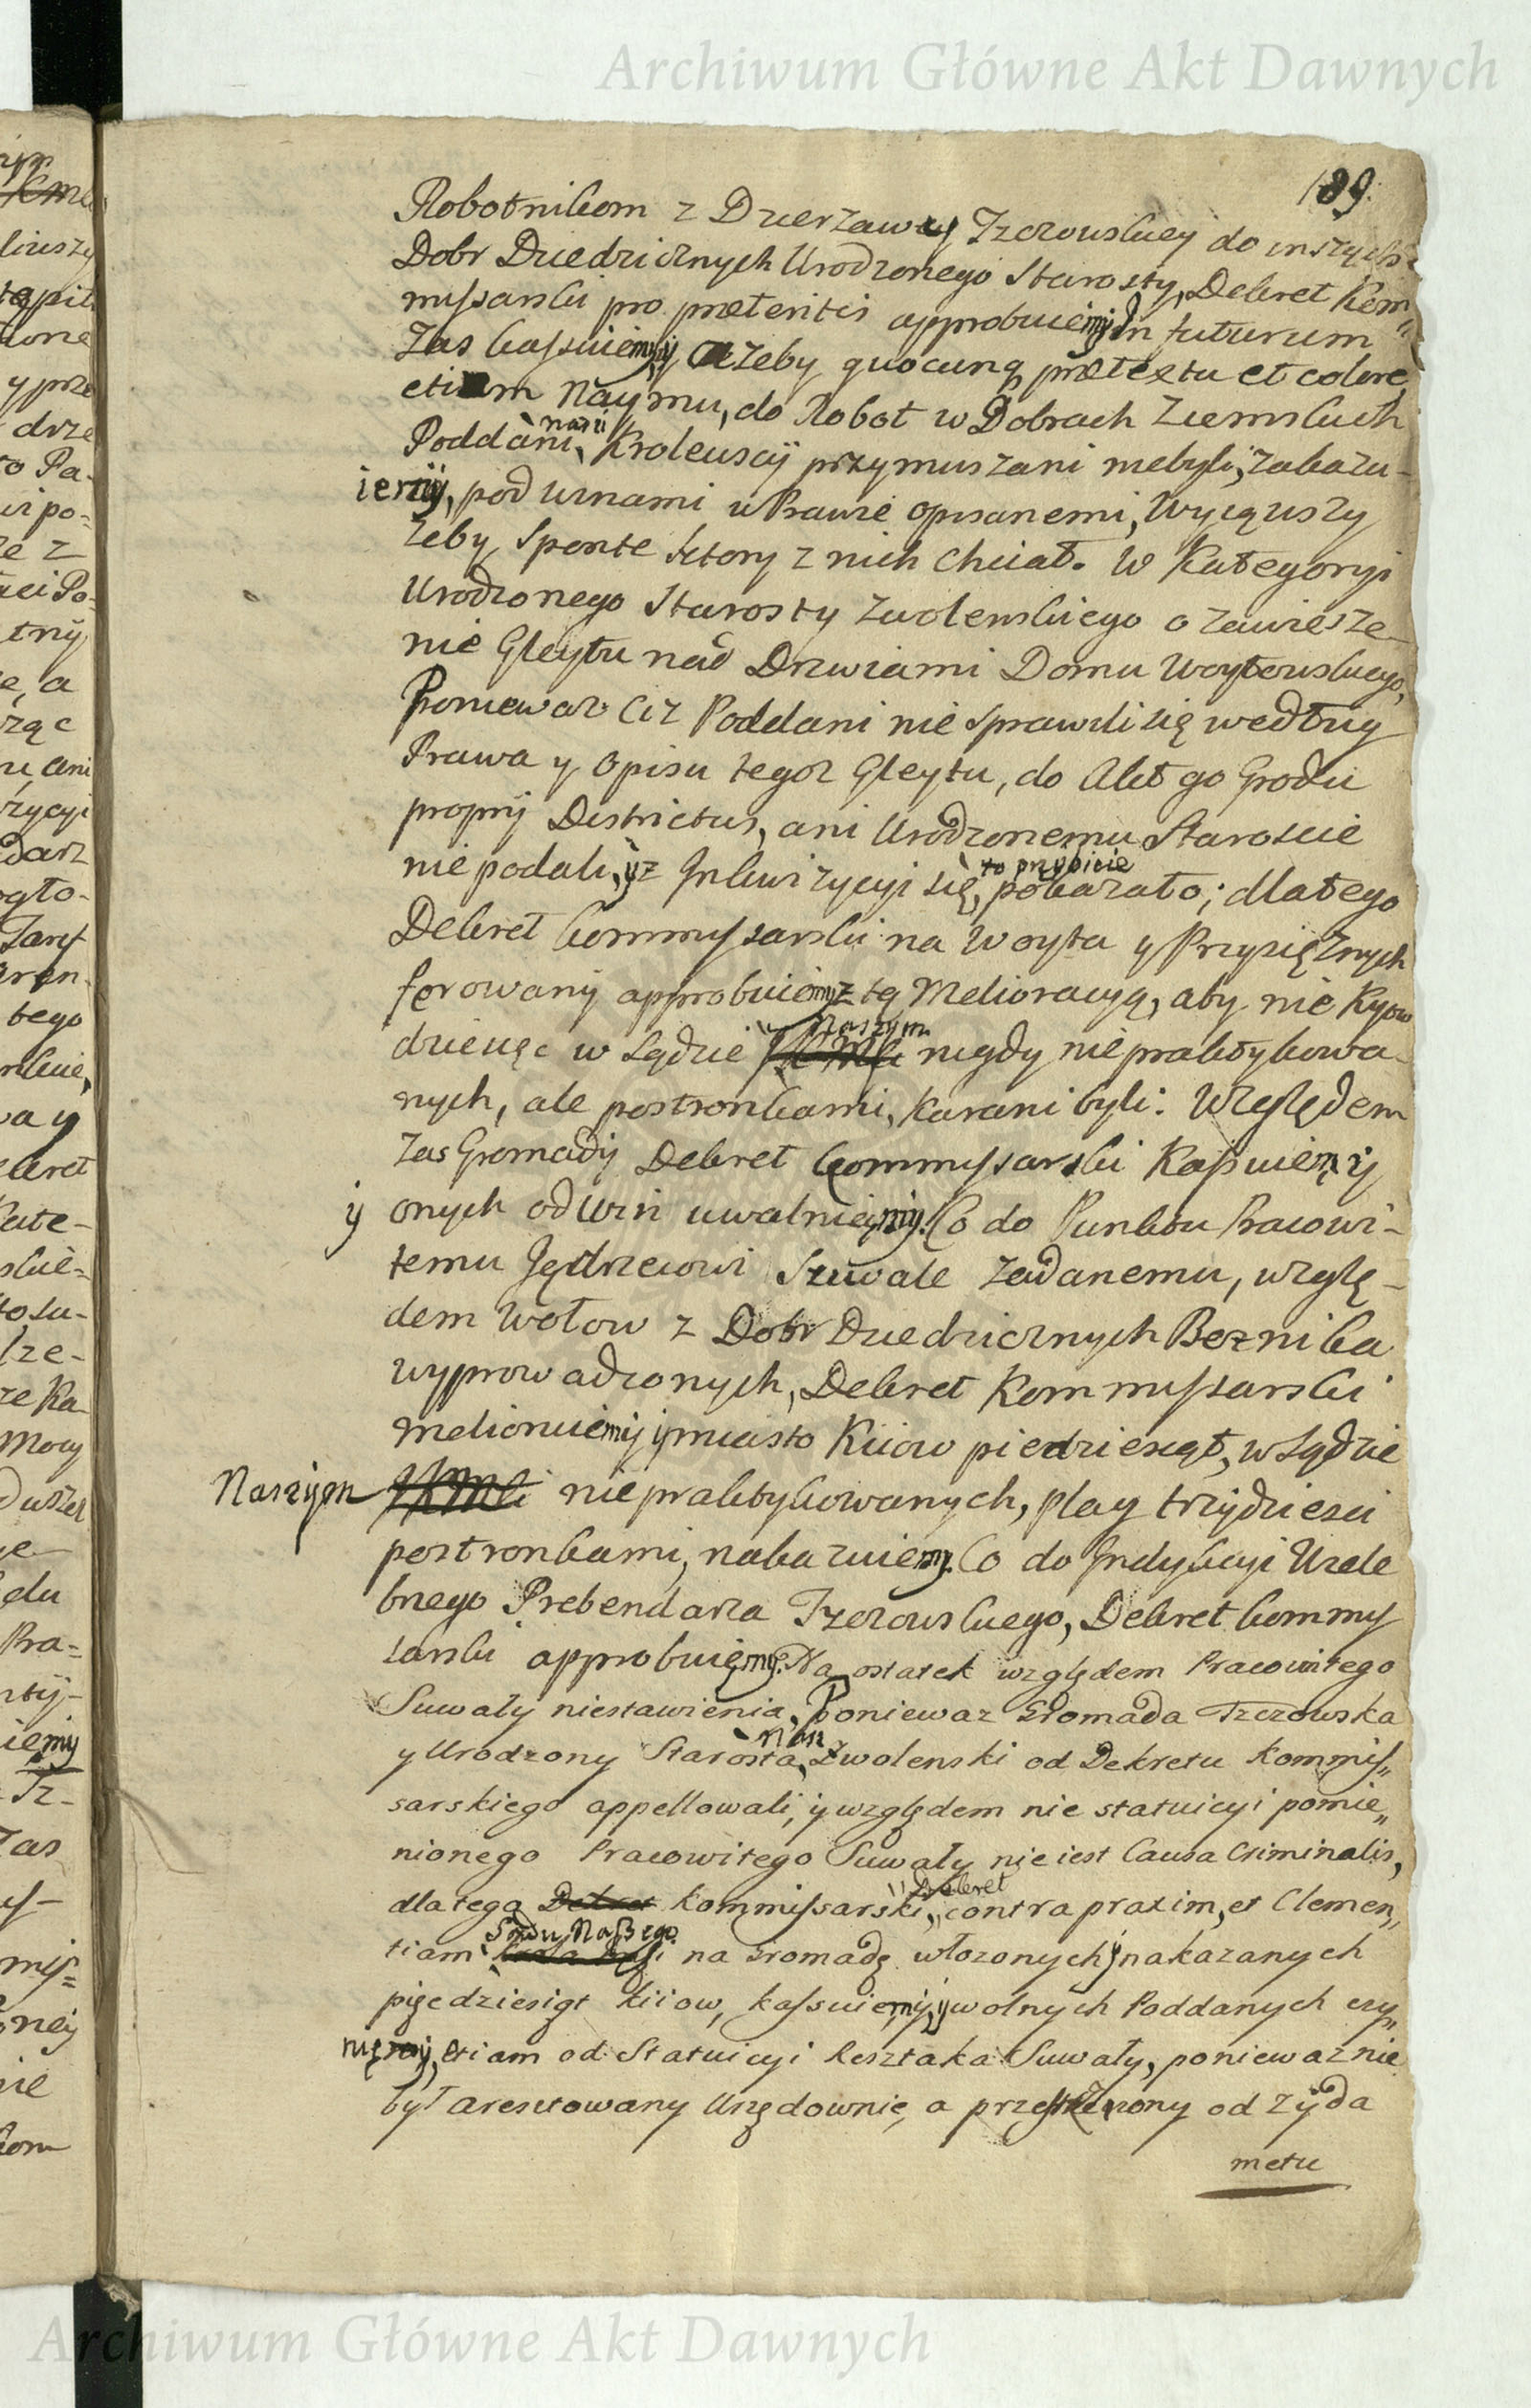 Archiwum Główne Akt Dawnych
189.
Robotnikom z Dzierzawy Tzczowskiey do inszych
Dobr Dziedzicznych Urodzonego Starosty, Dekret Kom„
missarski pro præteritis approbuiemy, In futurum
zas kassuiemy, y ażeby quocunq prætextu et colore
etiam Naymu, do Robot w Dobrach Ziemskich
Poddani naszi Krolewscy przymuszani niebyli, zakazu-
iemy, pod winami w Prawie opisanemi, Wyiąwszy
żeby sponte ktory z nich chciał. W Kategoryi
Urodzonego Starosty Zwolenskiego o zawiesze-
nie Gleytu nad Drzwiami Domu Woytowskiego,
Poniewaz ciz Poddani nie sprawili się według
Prawa y opisu tegoz Gleytu, do Akt go Grodu
proprij Districtus, ani Urodzonemu Staroscie
nie podali, ÿ z Inkwizycyi się to przybicie pokazało; dlatego
Dekret kommyssarski na Woyta y Przysięznych
ferowany approbuiemy z tą Melioracyą, aby nie Kyow
dziesięc w Sądzie Naszym nigdy nie praktykowa-
nych, ale postronkami, karani byli: Względem
zas Gromady Dekret kommyssarski Kassuiemy
ÿ onych od Win uwalniamy. Co do Punktu Pracowi-
temu Jędrzeiowi Szuwale zadanemu, wzglę-
dem Wołow z Dobr Dziedzicznych Beznika
wyprowadzonych, Dekret Kommyssarski
meliorniemy ÿ miasto Kiiow piędziesąt, w Sądzie
Naszÿm JKMci nie praktykowanych, plag trzÿdziesci
postronkami, nakazuiemy. Co do Indykcyi Wiele
bnego Prebendarza Tzczowskiego, Dekret kommys
sarski approbuięmy. Na ostatek względem Pracowitego
Suwały niestawienia, Poniewaz Gromada Tzczowska
y Urodzony Starosta Nasz Zwolenski od Dekretu Kommis„
sarskiego appellowali, ÿ względem nie statuicyi pomie„
nionego Pracowitego Suwały nie iest Causa Criminalis,
dla tego Dekret Kommissarski, Dekret contra praxim, et Clemen„
tiam Sądu Naszego na Gromadę włozonych ÿ nakazanych
pięcdziesiąt kiiow, kassuiemy, ÿ wolnych Poddanych czy„
nięmÿ, etiam od Statuicyi Kesztaka Suwały, poniewaz nie
był aresztowany Urzędownie, a przestrzezony od Zÿda
metu
Archiwum Główne Akt Dawnych